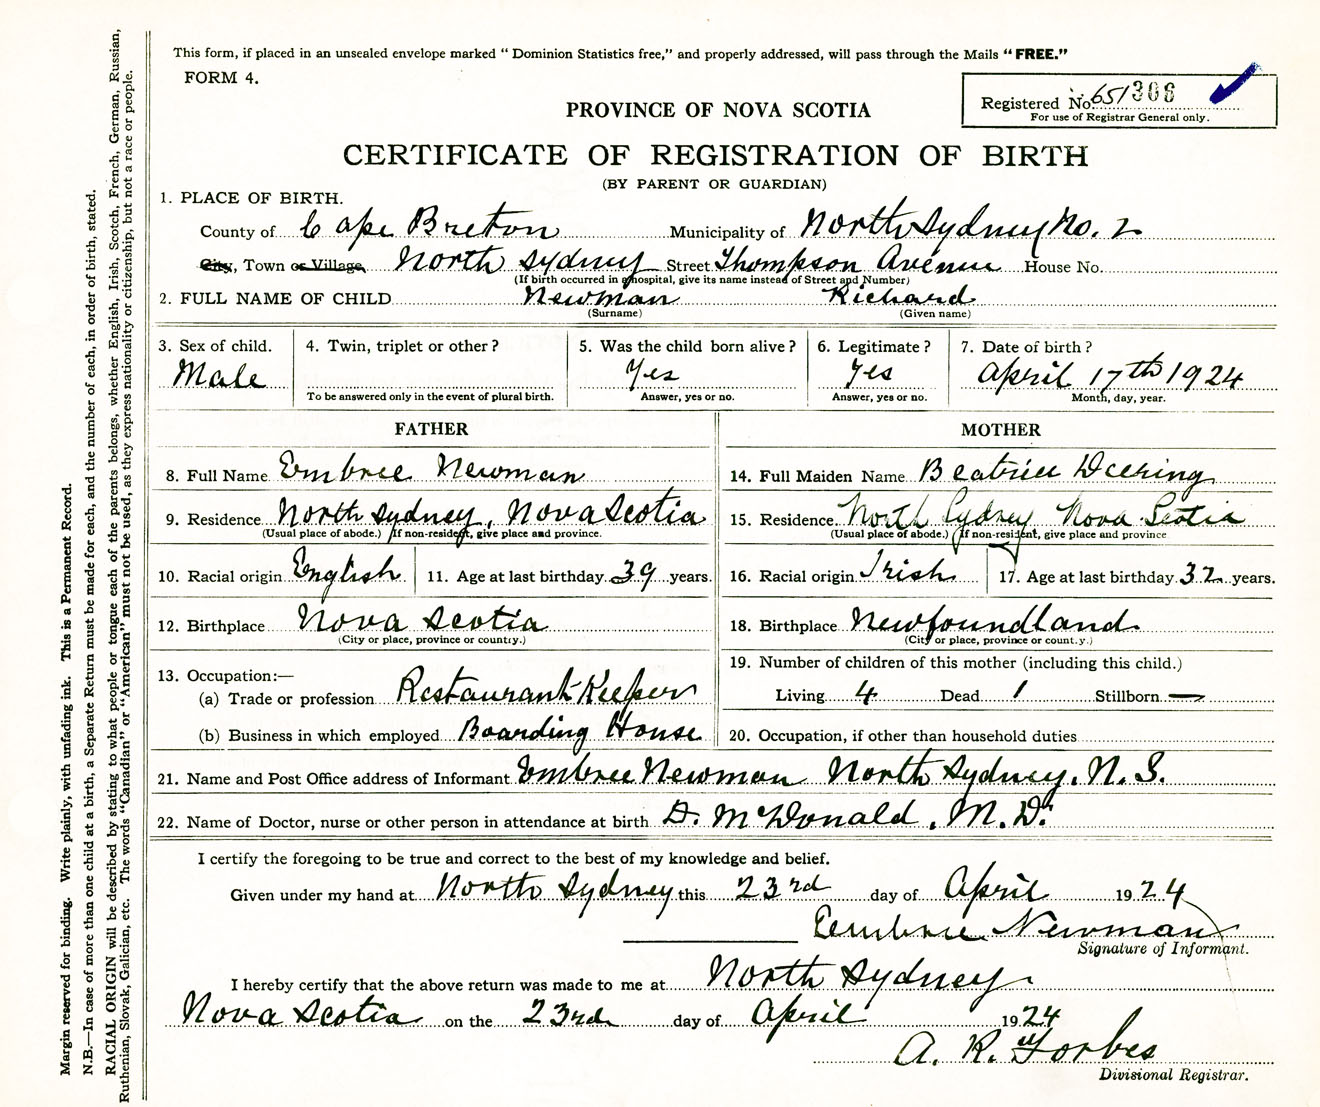 This form, if placed in an unsealed envelope marked " Dominion Statistics free," and properly addressed, will pass through the Mails "FREE."
FORM 4.
Registered No. 651306
For use of Registrar General only.
PROVINCE OF NOVA SCOTIA
CERTIFICATE OF REGISTRATION OF BIRTH
(BY PARENT OR GUARDIAN)
1. PLACE OF BIRTH.
County of Cape Breton Municipality of North Sydney No. 2
City, Town or Village, North Sydney Street Thompson Avenue House No.
(If birth occurred in a hospital, give its name instead of Street and Number)
2. FULL NAME OF CHILD Newman Richard
(Surname) (Given name)
3. Sex of child. 4. Twin, triplet or other ? 5. Was the child born alive ? 6. Legitimate ? 7. Date of birth ?
Male Yes Yes April 17th 1924
To be answered only in the event of plural birth. Answer, yes or no. Answer, yes or no. Month, day, year.
FATHER MOTHER
8. Full Name Embree Newman 14. Full Maiden Name Beatrice Deering
9. Residence North Sydney, Nova Scotia 15. Residence North Sydney Nova Scotia
(Usual place of abode.) (If non-resident, give place and province. (Usual place of abode.) (If non-resident, give place and province
10. Racial origin English 11. Age at last birthday 39 years. 16. Racial origin Irish 17. Age at last birthday 32 years.
12. Birthplace Nova Scotia 18. Birthplace Newfoundland
(City or place, province or country.) (City or place, province or country.)
13. Occupation:— 19. Number of children of this mother (including this child.)
(a) Trade or profession Restaurant Keeper Living 4 Dead 1 Stillborn —
(b) Business in which employed Boarding House 20. Occupation, if other than household duties
21. Name and Post Office address of Informant Embree Newman North Sydney, N. S.
22. Name of Doctor, nurse or other person in attendance at birth D. McDonald, M.D.
I certify the foregoing to be true and correct to the best of my knowledge and belief.
Given under my hand at North Sydney this 23rd day of April 1924
Embree Newman
Signature of Informant.
I hereby certify that the above return was made to me at North Sydney
Nova Scotia on the 23rd day of April 1924
A. K. Forbes
Divisional Registrar.
Margin reserved for binding. Write plainly, with unfading ink. This is a Permanent Record.
N.B.—In case of more than one child at a birth, a Separate Return must be made for each, and the number of each, in order of birth, stated.
RACIAL ORIGIN will be described by stating to what people or tongue each of the parents belongs, whether English, Irish, Scotch, French, German, Russian,
Ruthenian, Slovak, Galician, etc. The words "Canadian" or "American" must not be used, as they express nationality or citizenship, but not a race or people.